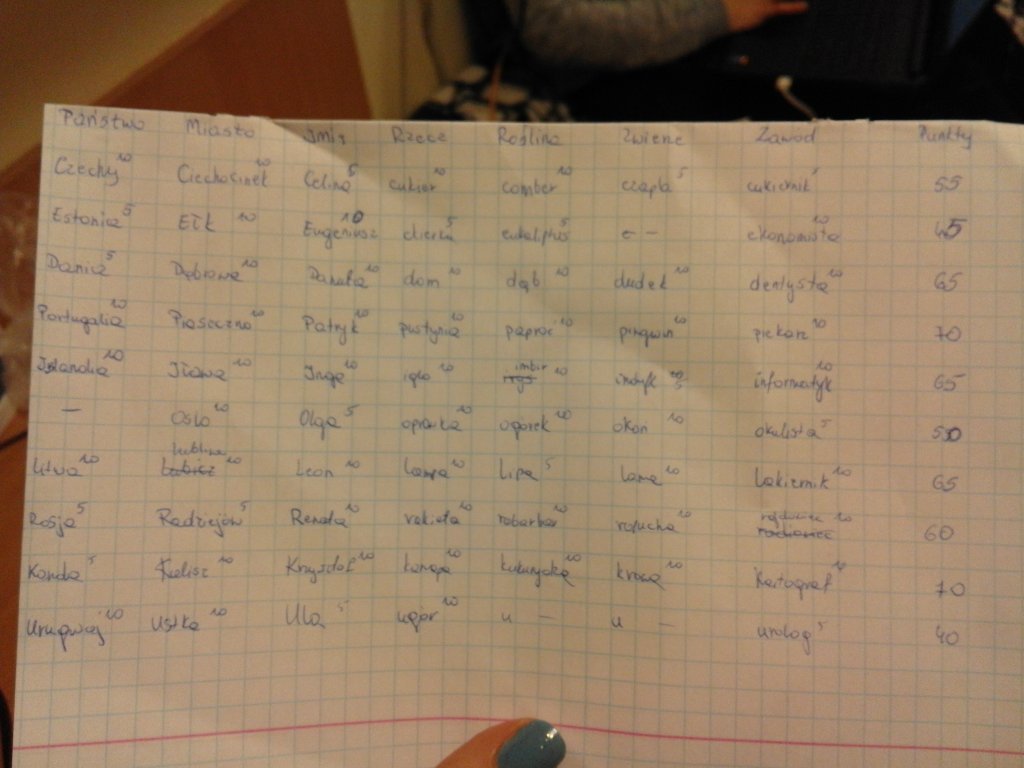 Państwo Miasto Imię Rzecz Roślina Zwierzę Zawód Punkty
Czechy 10 Ciechocinek 10 Celina 5 cukier 10 comber 10 czapla 5 cukiernik 5 55
Estonia 5 Ełk 10 Eugeniusz 10 5 eukaliptus 5 e - ekonomista 10 45
Dania 5 Dąbrowa 10 Danuta 10 dom 10 dąb 10 dudek 10 dentysta 10 65
Portugalia 10 Piaseczno 10 Patryk 10 pustynia 10 paproć 10 pingwin 10 piekarz 10 70
Islandia 10 Iława 10 Inga 10 iglo 10 imbir 10 indyk 5 informatyk 10 65
- Oslo 10 Olga 5 oprawka 10 ogórek 10 okoń 10 okulista 5 50
Litwa 10 Lubliniec 10 Leon 10 lampa 10 lipa 5 lama 10 Lakiernik 10 65
Rosja 5 Radziejów 5 Renata 10 rakieta 10 rabarbar 10 ropucha 10 10 60
Kanada 5 Kalisz 10 Krzysztof 10 kanapa 10 kukurydza 10 krowa 10 Kartograf 10 70
Urugwaj 10 Ustka 10 Ula 5 ugór 10 u - u - urolog 5 40